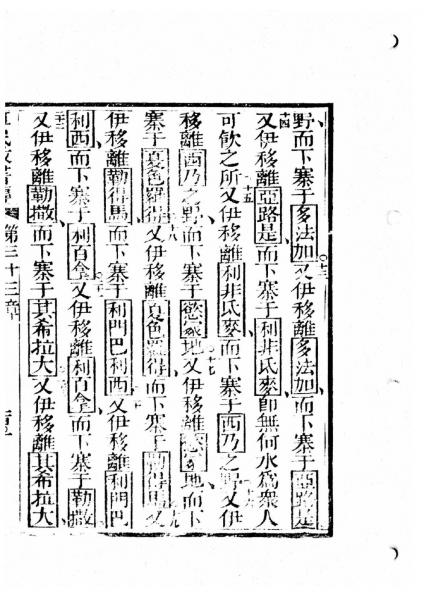 野而下寨于多法加〇十三又伊移離多法加而下寨于亞路是
十四又伊移離亞路是而下寨于利非氏麥即無何水為衆人
可飲之所十五又伊移離利非氏麥而下寨于西乃之野十六又伊
移離西乃之野而下寨于慾冢地十七又伊移離慾冢地而下
寨于夏色羅得十八又伊移離夏色羅得而下寨于勒得馬十九又
伊移離勒得馬而下寨于利門巴利西二十又伊移離利門巴
利西而下寨于利百拿二一又伊移離利百拿而下寨于勒撒
二二又伊移離勒撒而下寨于其希拉大二三又伊移離其希拉大
第三十三章